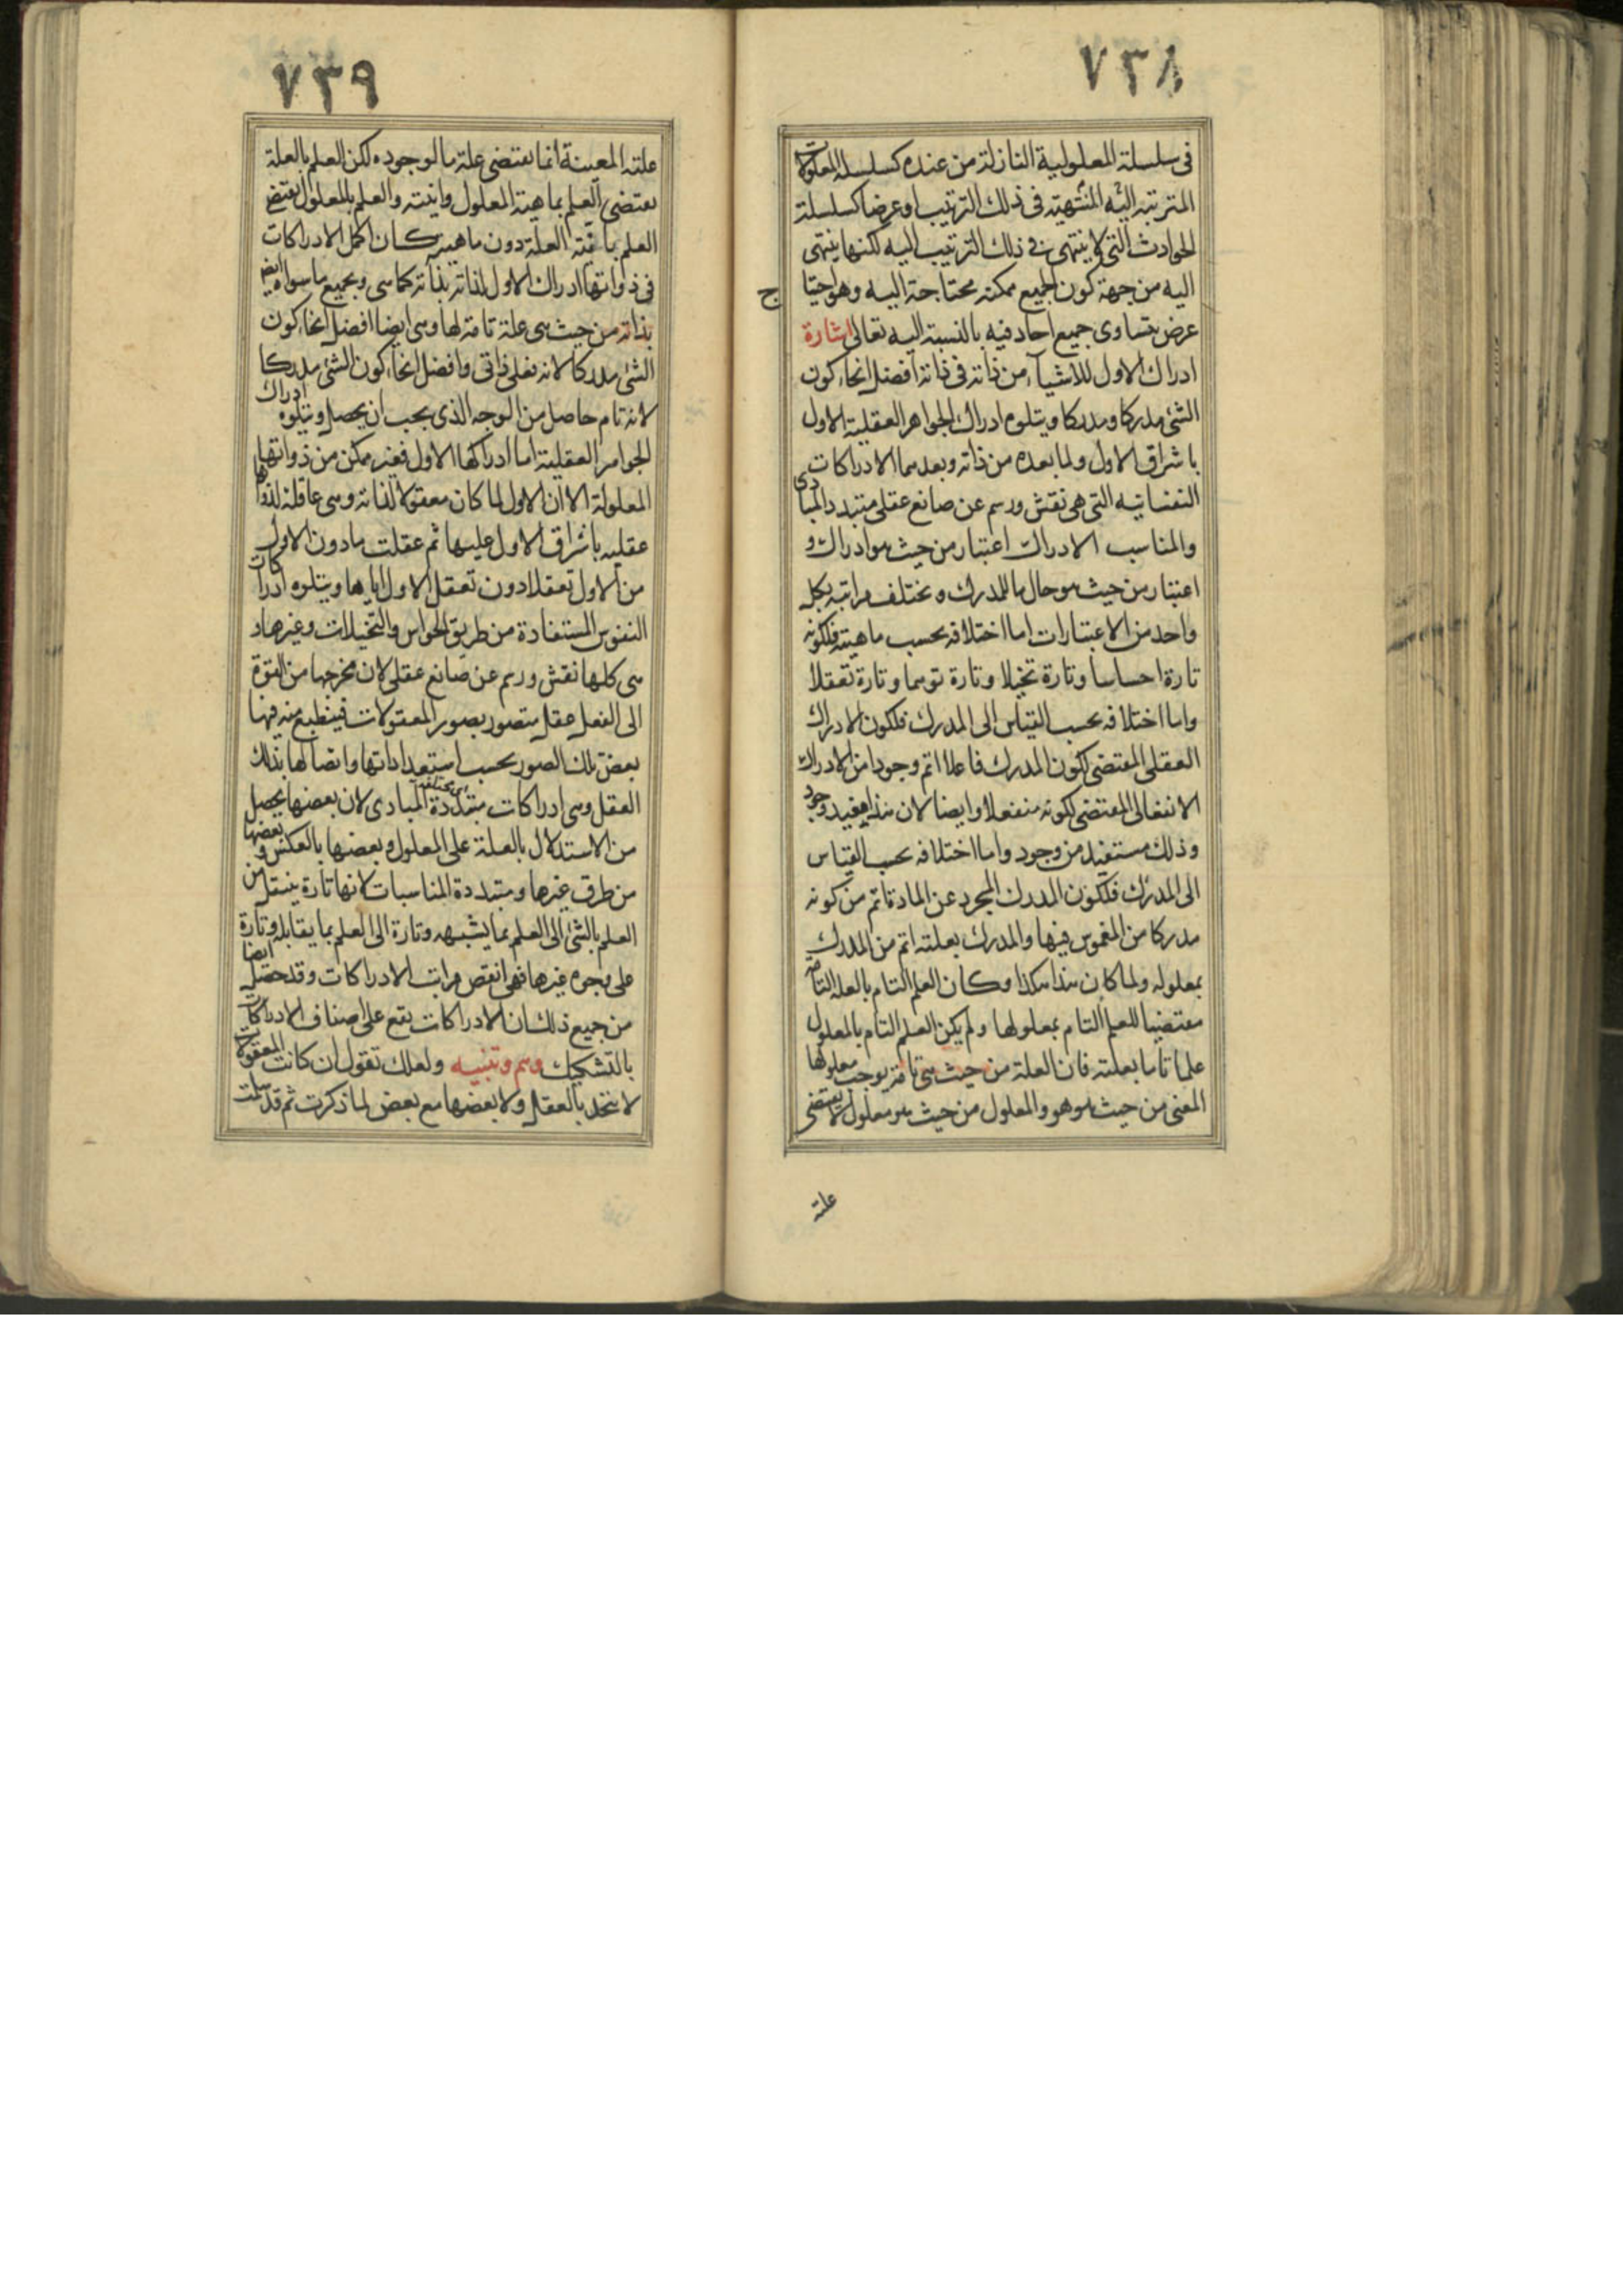 ٧٣٨
في سلسلة المعلولية النازلة من عنده كسلسلة المعلولات
المترتبة اليه المنتهية في ذلك الترتيب او عرضا كسلسلة
الحوادث التي لا ينتهى في ذلك الترتيب اليه لكنها ينتهى
اليه من جهة كون الجميع ممكنة محتاجة اليه وهو احتيا
ج
عرضى يتساوى جميع احاد فيه بالنسبة اليه تعالى اشارة
ادراك الاول للاشياء من ذاته في ذاته افضل انحاء كون
الشئ مدركا ومدركا ويتلوه ادراك الجواهر العقلية الاول
باشراق الاول ولما بعده من ذاته وبعدهما الادراكات
النفسانية التى هى نقش ورسم عن صانع عقلى متبدد المبادى
والمناسب الادراك اعتبار من حيث هو ادراك و
اعتبار من حيث هو حال ما للمدرك ويختلف مراتبه بكل
واحد من الاعتبارات اما اختلافه بحسب ماهيته فلكونه
تارة احساسا وتارة تخيلا وتارة توهما وتارة تعقلا
واما اختلافه بحسب القياس الى المدرك فلكون الادراك
العقلى المقتضى لكون المدرك فاعلا اتم وجودا من الادراك
الانفعالى المقتضى لكونه منفعلا وايضا لان هذا مفيد وجود
وذلك مستفيد من وجود واما اختلافه بحسب القياس
الى المدرك فلكون المدرك المجرد عن المادة اتم من كونه
مدركا من المغموس فيها والمدرك بعلته اتم من المدرك
بمعلوله ولما كان هذا هكذا وكان العلم التام بالعلة التامة
مقتضيا للعلم التام بمعلولها ولم يكن العلم التام بالمعلول
علما تاما بعلته فان العلة من حيث هى تامة يوجب معلولها
المعنى من حيث هو هو والمعلول من حيث هو معلول لا يقتضى
علته
٧٣٩
علته المعينة انما يقتضى علة ما لوجوده لكن العلم بالعلة
يقتضى العلم بماهية المعلول وانيته والعلم بالمعلول يقتضى
العلم بانية العلة دون ماهيته كان اكمل الادراكات
في ذواتها ادراك الاول لذاته بذاته كما هى وبجميع ما سواه ايضا
بذاته من حيث هى علة تامة لها وهى ايضا افضل انحاء كون
الشئ مدركا لانه فعلى ذاتى وافضل انحاء كون الشئ مدركا
لانه تام حاصل من الوجه الذى يجب ان يحصل ويتلوه ادراك
الجواهر العقلية اما ادراكها الاول فغير ممكن من ذواتها
المعلولة الا ان الاول لما كان معقولا لذاته وهى عاقلة لذواتها
عقليه باشراق الاول عليها ثم عقلت ما دون الاول
من الاول تعقلا دون تعقل الاول اياها ويتلوه ادراكات
النفوس المستفادة من طريق الحواس والتخيلات وغيرها و
هى كلها نقش ورسم عن صانع عقلى لان مخرجها من القوة
الى الفعل عقل متصور بصور المعقولات فينطبع منه فيها
بعض تلك الصور بحسب استعداداتها واتصالها بذلك
العقل وهى ادراكات متبددة المبادى لان بعضها يحصل
من الاستدلال بالعلة على المعلول وبعضها بالعكس وبعضها
من طرق غيرها ومتبددة المناسبات لانها تارة ينتقل من
العلم بالشئ الى العلم بما يشبهه وتارة الى العلم بما يقابله وتارة
على وجوه غيرها فهى انقص مراتب الادراكات وقد حصل ايضا
من جميع ذلك ان الادراكات يقع على اصناف الادراكات
بالتشكيك وهم وتنبيه ولعلك تقول ان كانت المعقولات
لا يتحد بالعقل ولا بعضها مع بعض لما ذكرت ثم قد سلمت